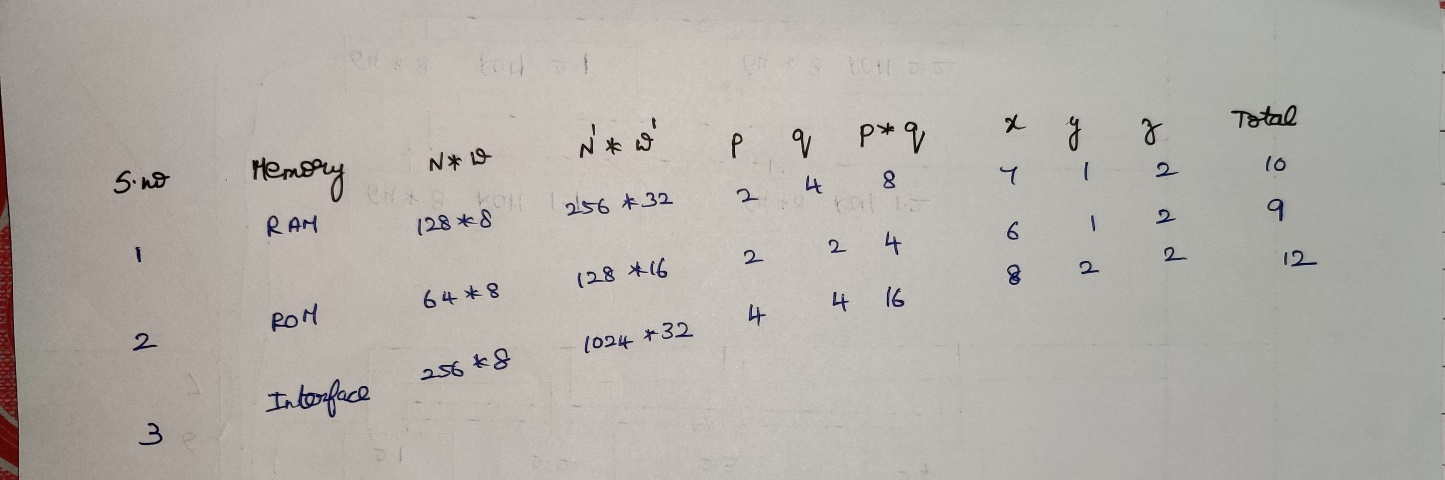 S.no Memory N*w N'*w' P q P*q x y z Total
1 RAM 128*8 256*32 2 4 8 7 1 2 10
2 ROM 64*8 128*16 2 2 4 6 1 2 9
3 Interface 256*8 1024*32 4 4 16 8 2 2 12